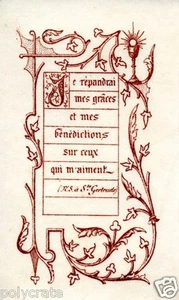 Je répandrai
mes grâces
et mes
bénédictions
sur ceux
qui m'aiment.
(N.S. à Ste Gertrude)
polycrate